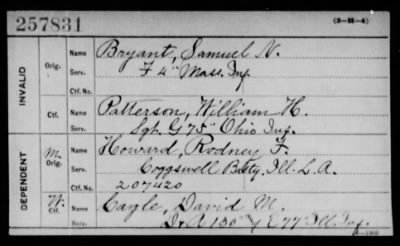 257831
(3-M-4)
INVALID
Orig. Name Bryant, Samuel N.
Serv. F 4" Mass. Inf.
Ctf. No.
Ctf. Name Patterson, William H.
Serv. Sgt. G 75" Ohio Inf.
DEPENDENT
M. Orig. Name Howard, Rodney F.
Serv. Coggswell Bsty. Ill. L. A.
Ctf. No. 207420
W. Ctf. Name Cagle, David M.
Serv. A 130" & E 77 Ill. Inf.